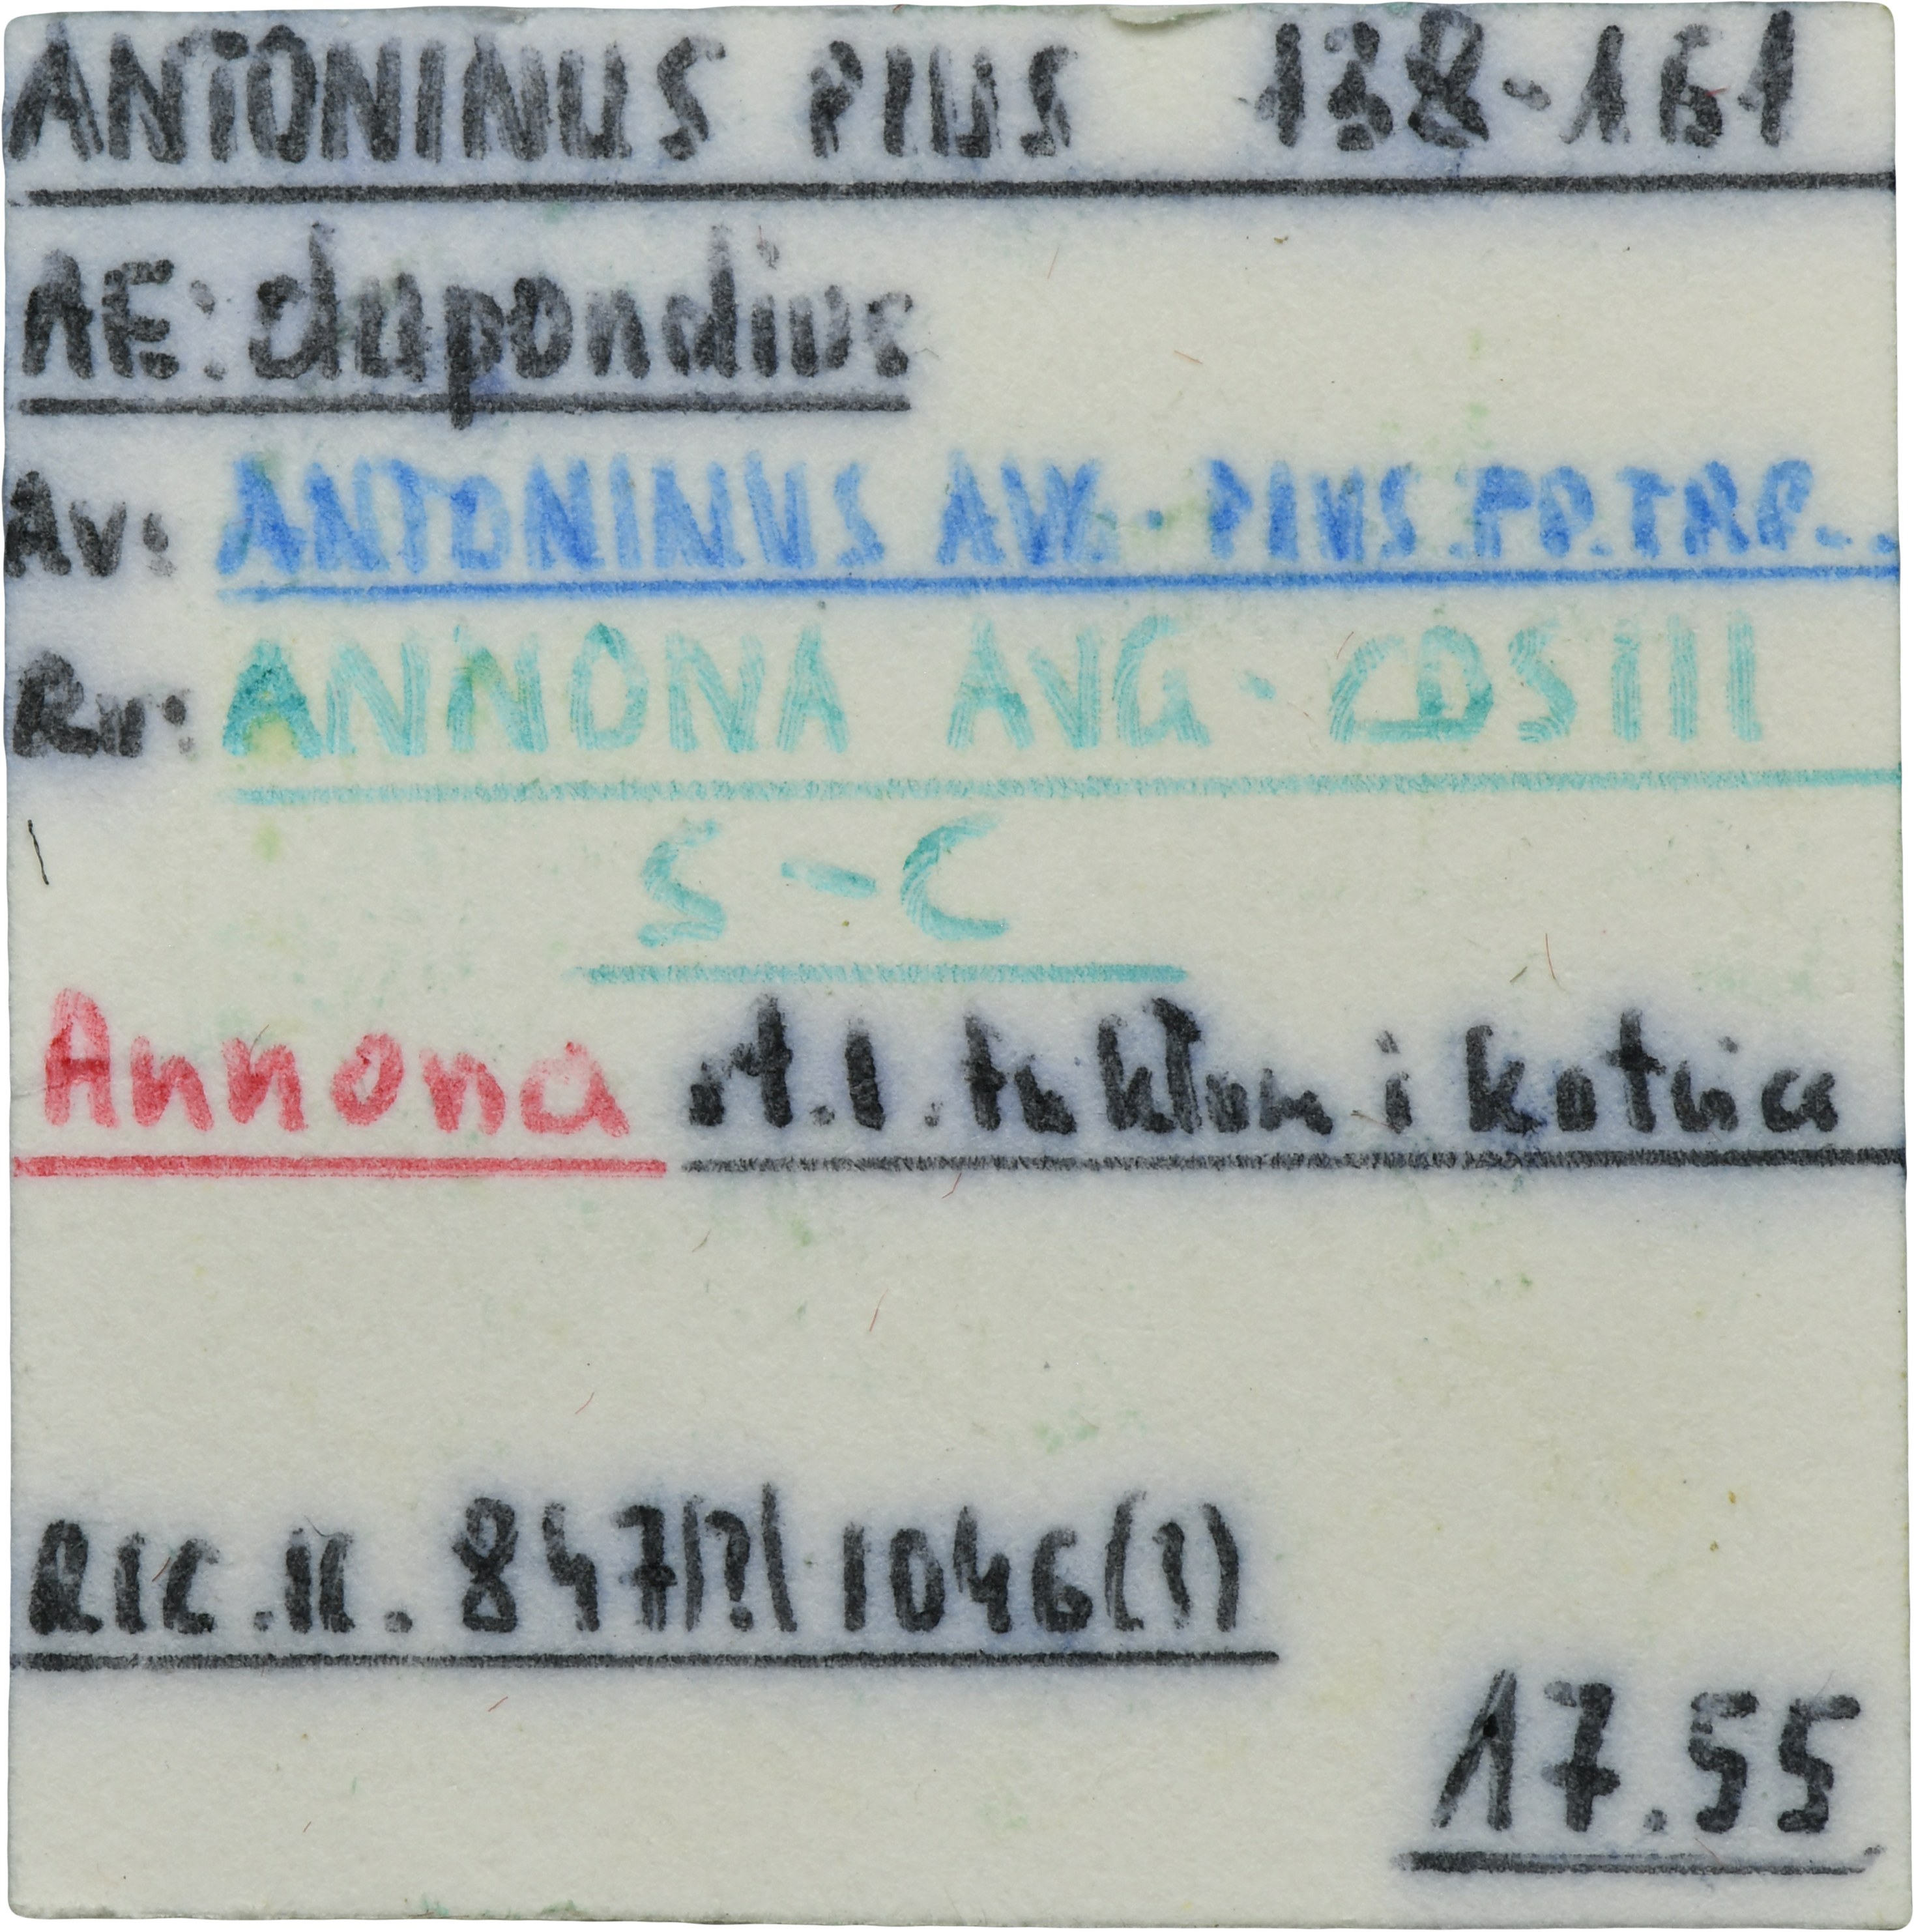 ANTONINUS PIUS 138-161
AE: dupondius
Av: ANTONINVS AVG - PIVS.PP.TRP...
Rv: ANNONA AVG - COSIII
S - C
Annona st. l. i kotvica
RIC.II. 847(?)/ 1046(?)
17.55